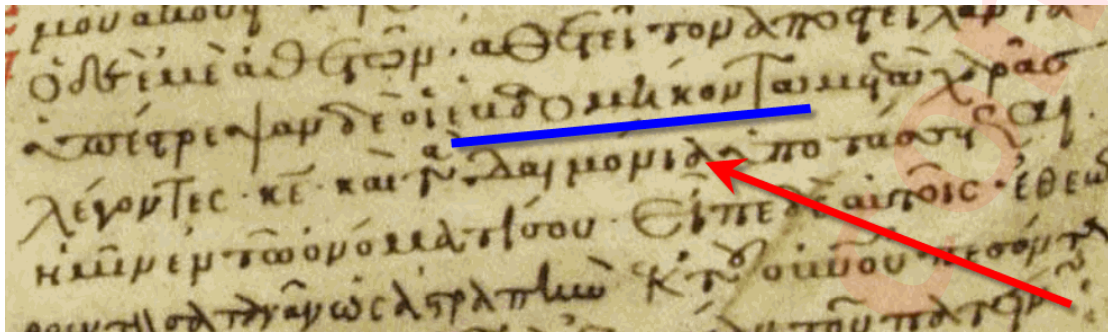 ὁ δὲ ἐμὲ ἀθετῶν· ἀθετεῖ τὸν ἀποστείλαντα
ὑπέστρεψαν δὲ οἱ ἑβδομήκοντα μετὰ χαρᾶς
λέγοντες· κε· καὶ τὰ δαιμόνια ὑποτάσσεται
ἡμῖν ἐν τῶ ὀνόματί σου· Εἶπε δὲ αὐτοῖς· ἐθεώ
τὸν σατανᾶν ὡς ἀστραπὴν ἐκ τοῦ οὐνοῦ πεσόντα